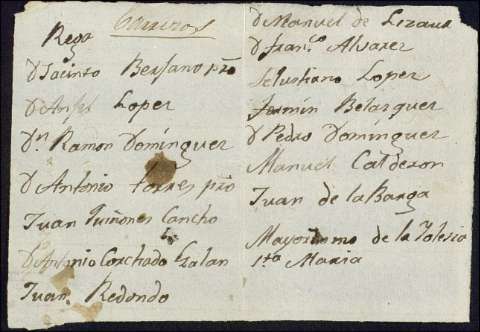 D. Jacinto Bersano pro
D. Anto Lopez
Dn. Ramon Dominguez
D. Antonio torres pro
Juan Quiñones Cancho
D. Antonio Corchado Galan
Juan Redondo
D. Manuel de Lizaur
D. Franco Alvarez
Selustiano Lopez
Fermín Belazquez
D. Pedro Dominguez
Manuel Calderon
Juan de la Barga
Mayordomo de la Iglesia
Sta Maria